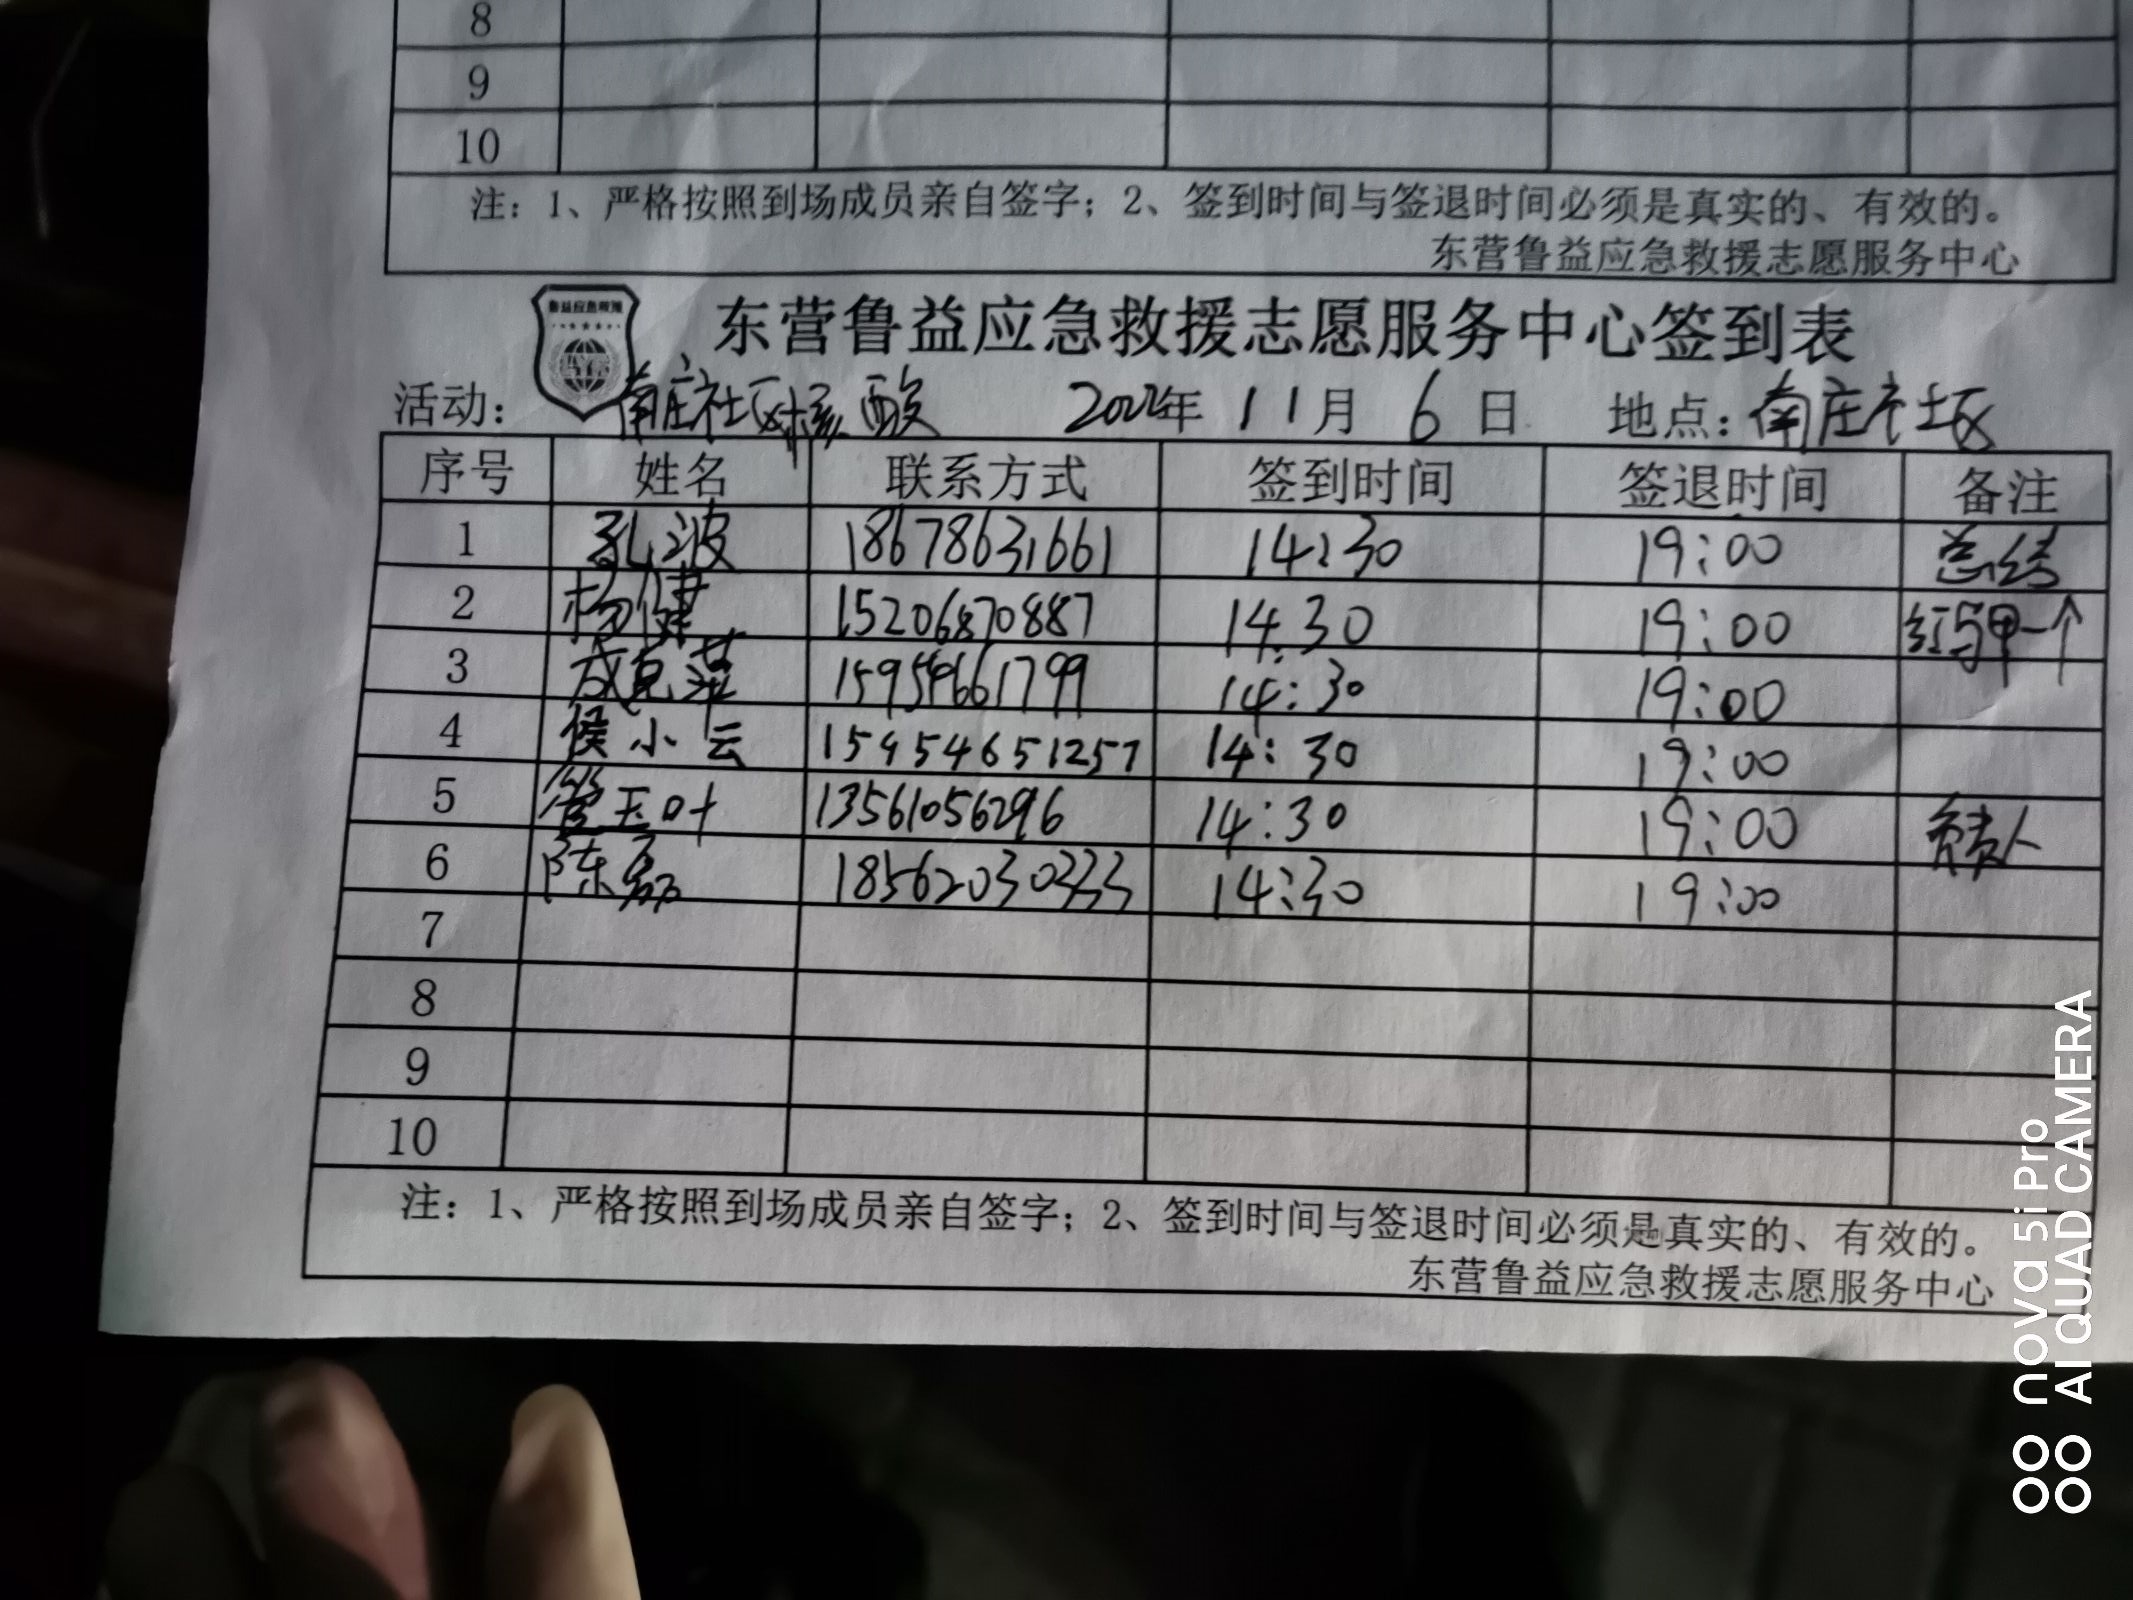 8
9
10
注：1、严格按照到场成员亲自签字；2、签到时间与签退时间必须是真实的、有效的。
东营鲁益应急救援志愿服务中心
鲁益应急救援
东营鲁益应急救援志愿服务中心签到表
活动：南庄社区核酸 2022年 11月 6日 地点：南庄社区
序号 姓名 联系方式 签到时间 签退时间 备注
1 孔波 18678631661 14:30 19:00 总结
2 杨健 15206870887 14:30 19:00 红马甲一个
3 成克萍 15954661799 14:30 19:00
4 侯小云 15954651257 14:30 19:00
5 管玉叶 13561056296 14:30 19:00 负责人
6 陈磊 18562030333 14:30 19:00
7
8
9
10
注：1、严格按照到场成员亲自签字；2、签到时间与签退时间必须是真实的、有效的。
东营鲁益应急救援志愿服务中心
nova 5i Pro
AI QUAD CAMERA